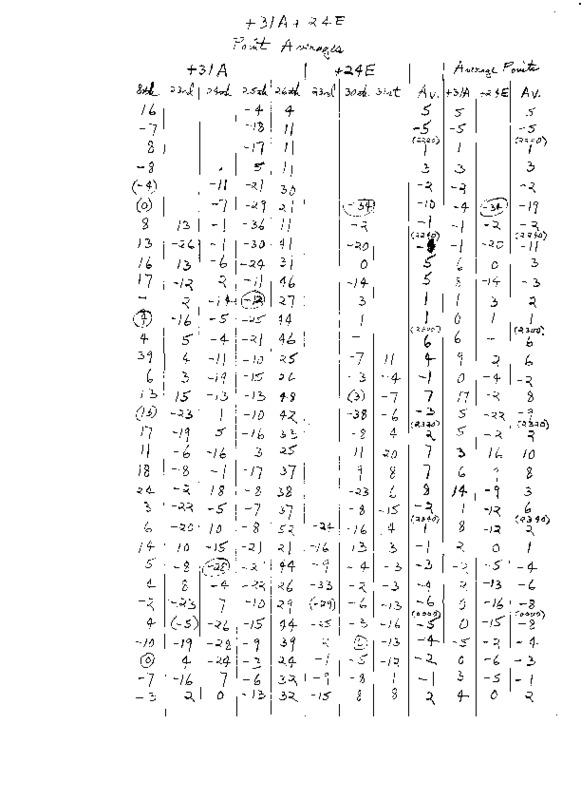 +31A + 24E
Point Averages
+31A +24E Average Points
8th 23rd 24th 25th 26th 23rd 30th 31st Av. +31A +24E Av.
16 -4 4 5 5 5
-7 -18 11 -5 -5 -5
(2220) (2220)
8 -17 11 1 1 1
-8 5 11 3 3 3
(-4) -11 -21 30 -2 -2 -2
(0) -7 -29 21 -34 -10 -4 -34 -19
8 13 -1 -36 11 -2 -1 -1 -2 -2
(2240) (2240)
13 -26 -1 -30 41 -20 -1 -20 -11
16 13 -6 -24 31 0 5 6 0 3
17 -12 2 -11 46 -14 5 8 -14 -3
- 2 -14 -12 27 3 1 1 3 2
-16 -5 -25 44 1 1 0 1 1
(2300) (2300)
4 5 -4 -21 46 - 6 6 - 6
39 4 -11 -10 25 -7 11 4 9 2 6
6 3 -19 -15 26 -3 -4 -1 0 -4 -2
13 15 -13 -13 48 (3) -7 7 17 -2 8
(13) -23 1 -10 42 -38 -6 -3 5 -22 -9
(2320) (2320)
17 -19 5 -16 33 -8 4 2 5 -2 2
11 -6 -16 3 25 11 20 7 3 16 10
18 -8 -1 -17 37 9 8 7 6 8
24 -2 18 -8 38 -23 6 8 14 -9 3
3 -22 -5 -7 37 -8 -15 -2 1 -12 6
(2340) (2340)
6 -20 10 -8 52 -24 -16 4 1 8 -12 2
14 10 -15 -21 21 -16 13 3 -1 2 0 1
5 -8 -28 -2 44 -9 -4 -3 -3 -2 -5 -4
4 8 -4 -22 26 -33 -2 -3 -4 2 -13 -6
-2 -23 7 -10 29 (-29) -6 -13 -6 0 -16 -8
(0000) (0000)
4 (-5) -26 -15 44 -25 -3 -16 -5 0 -15 -8
-10 -19 -28 -9 39 2 -13 -4 -5 -2 -4
(0) 4 -24 -3 24 -1 -5 -12 -2 0 -6 -3
-7 -16 7 -6 32 -9 -8 1 -1 3 -5 -1
-3 2 0 -13 32 -15 8 8 2 4 0 2